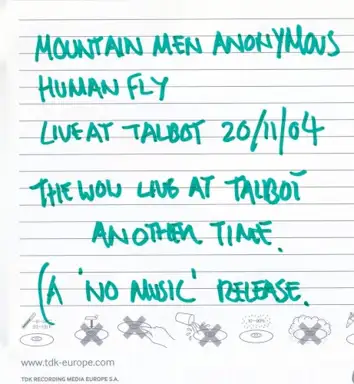 MOUNTAIN MEN ANONYMOUS
HUMAN FLY
LIVE AT TALBOT 20/11/04
THE WOU LIVE AT TALBOT
ANOTHER TIME.
(A 'NO MUSIC' RELEASE.
www.tdk-europe.com
TDK RECORDING MEDIA EUROPE S.A.